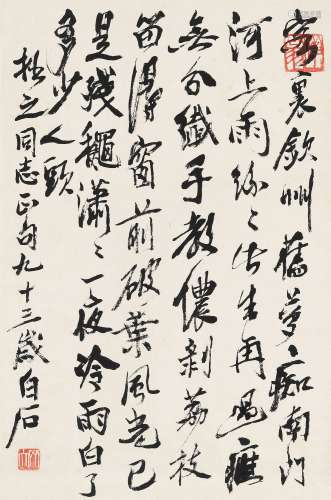 客裏欽州舊夢痴南門
河上雨絲〻此生再過應
無分纖手教儂剥荔枝
留得窗前破葉風光已
是殘龝瀟〻一夜冷雨白了
多少人頭
拙之同志正句九十三歲白石